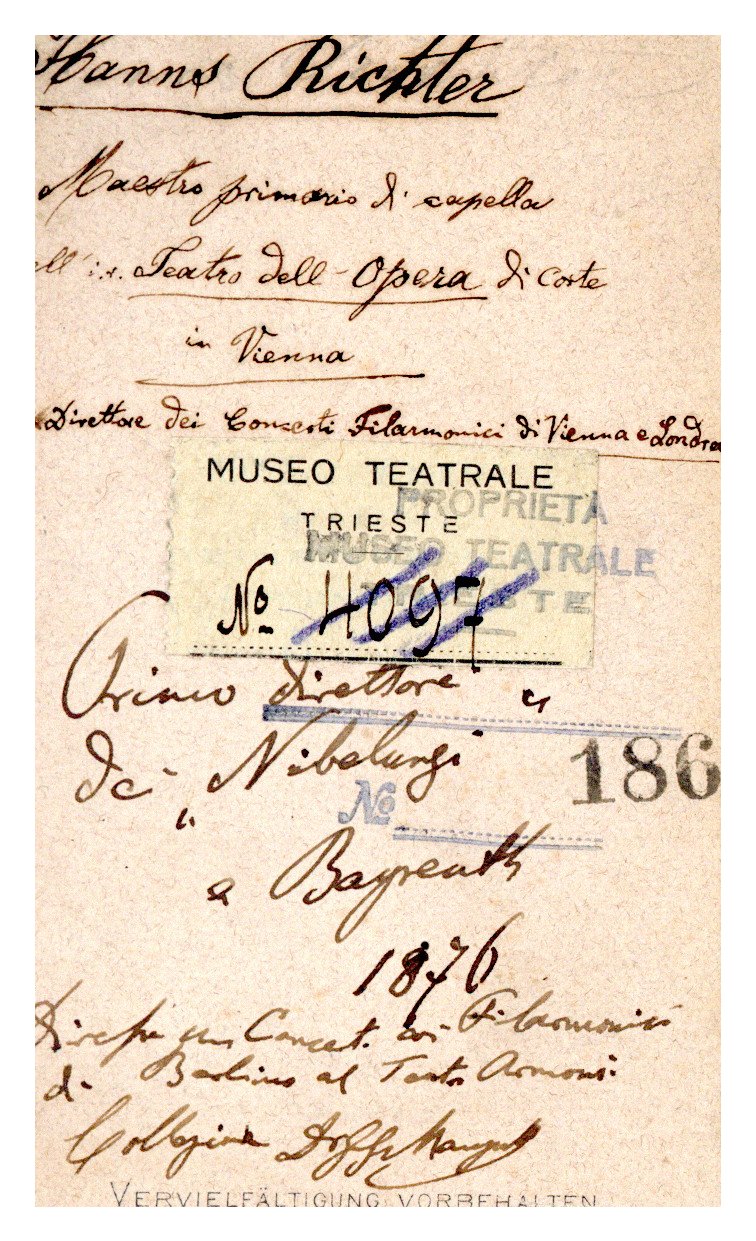 Hanns Richter
Maestro primario di capella
ell' i.r. Teatro dell-Opera di Corte
in Vienna
Direttore dei Concerti Filarmonici di Vienna e Londra
MUSEO TEATRALE
TRIESTE
No 4097
PROPRIETÀ
MUSEO TEATRALE
TRIESTE
Primo direttore
dei "Nibelungi"
No
186
a Bayreuth
1876
un Concert. coi Filarmonici
di Berlino al Teatro Armoni.
VERVIELFÄLTIGUNG VORBEHALTEN